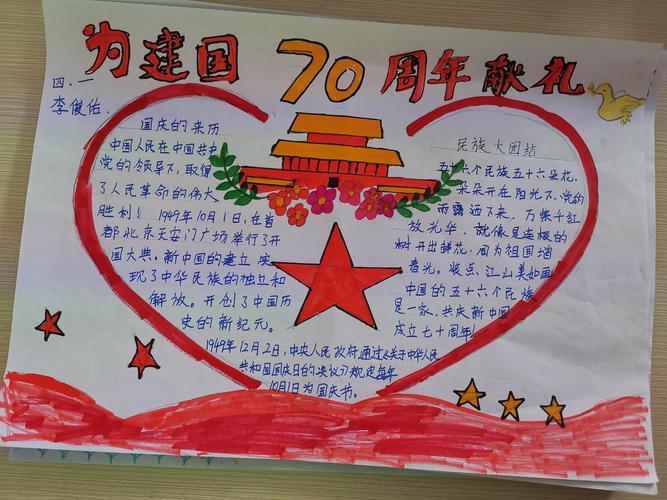 为建国70周年献礼
四、一
李俊佑
国庆的来历
中国人民在中国共产
党的领导下,取得
了人民革命的伟大
胜利!1949年10月1日,在首
都北京天安门广场举行了开
国大典,新中国的建立,实
现了中华民族的独立和
解放。开创了中国历
史的新纪元。
1949年12月2日,中央人民政府通过《关于中华人民
共和国国庆日的决议》规定每年
10月1日为国庆节。
民族大团结
五十六个民族五十六朵花,
朵朵开在阳光下,党的
雨露洒下来,万紫千红
放光华,就像是连根的
树开出鲜花,同为祖国增
春光。装点江山美如画
中国的五十六个民族
是一家,共庆新中国
成立七十周年!